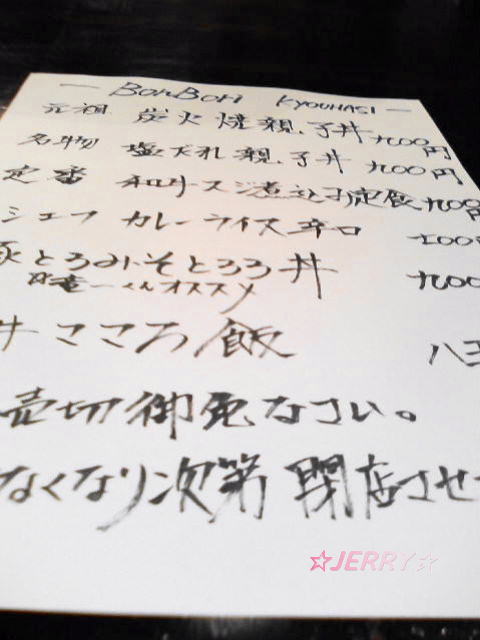 — BonBori KYOUHASI —
元祖 炭火焼親子丼 九〇〇円
名物 塩だれ親子丼 九〇〇円
定番 和牛スジ煮込み定食 九〇〇円
シェフ カレーライス辛口
豚とろみそとろろ丼 九〇〇
一くんオススメ
牛こころ飯 八五
売切御免なさい。
なくなり次第 閉店させ
☆JERRY☆